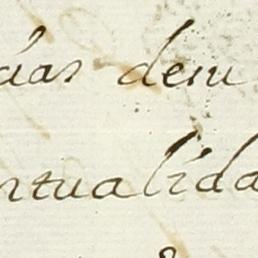 das deu
ntualida